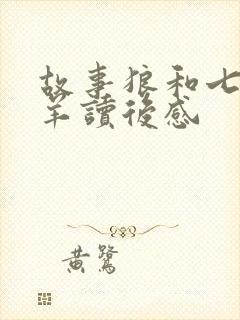 故事狼和七
羊讀後感
黄鷺